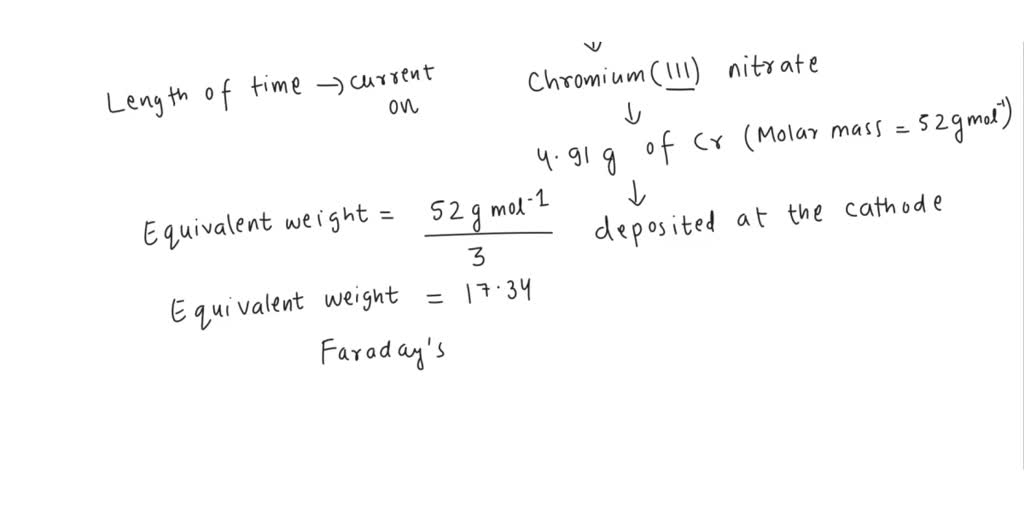 Length of time → current on
↓
Chromium (III) nitrate
↓
4.91 g of Cr (Molar mass = 52 g mol⁻¹)
↓
deposited at the cathode
Equivalent weight = 52 g mol⁻¹ / 3
Equivalent weight = 17.34
Faraday's